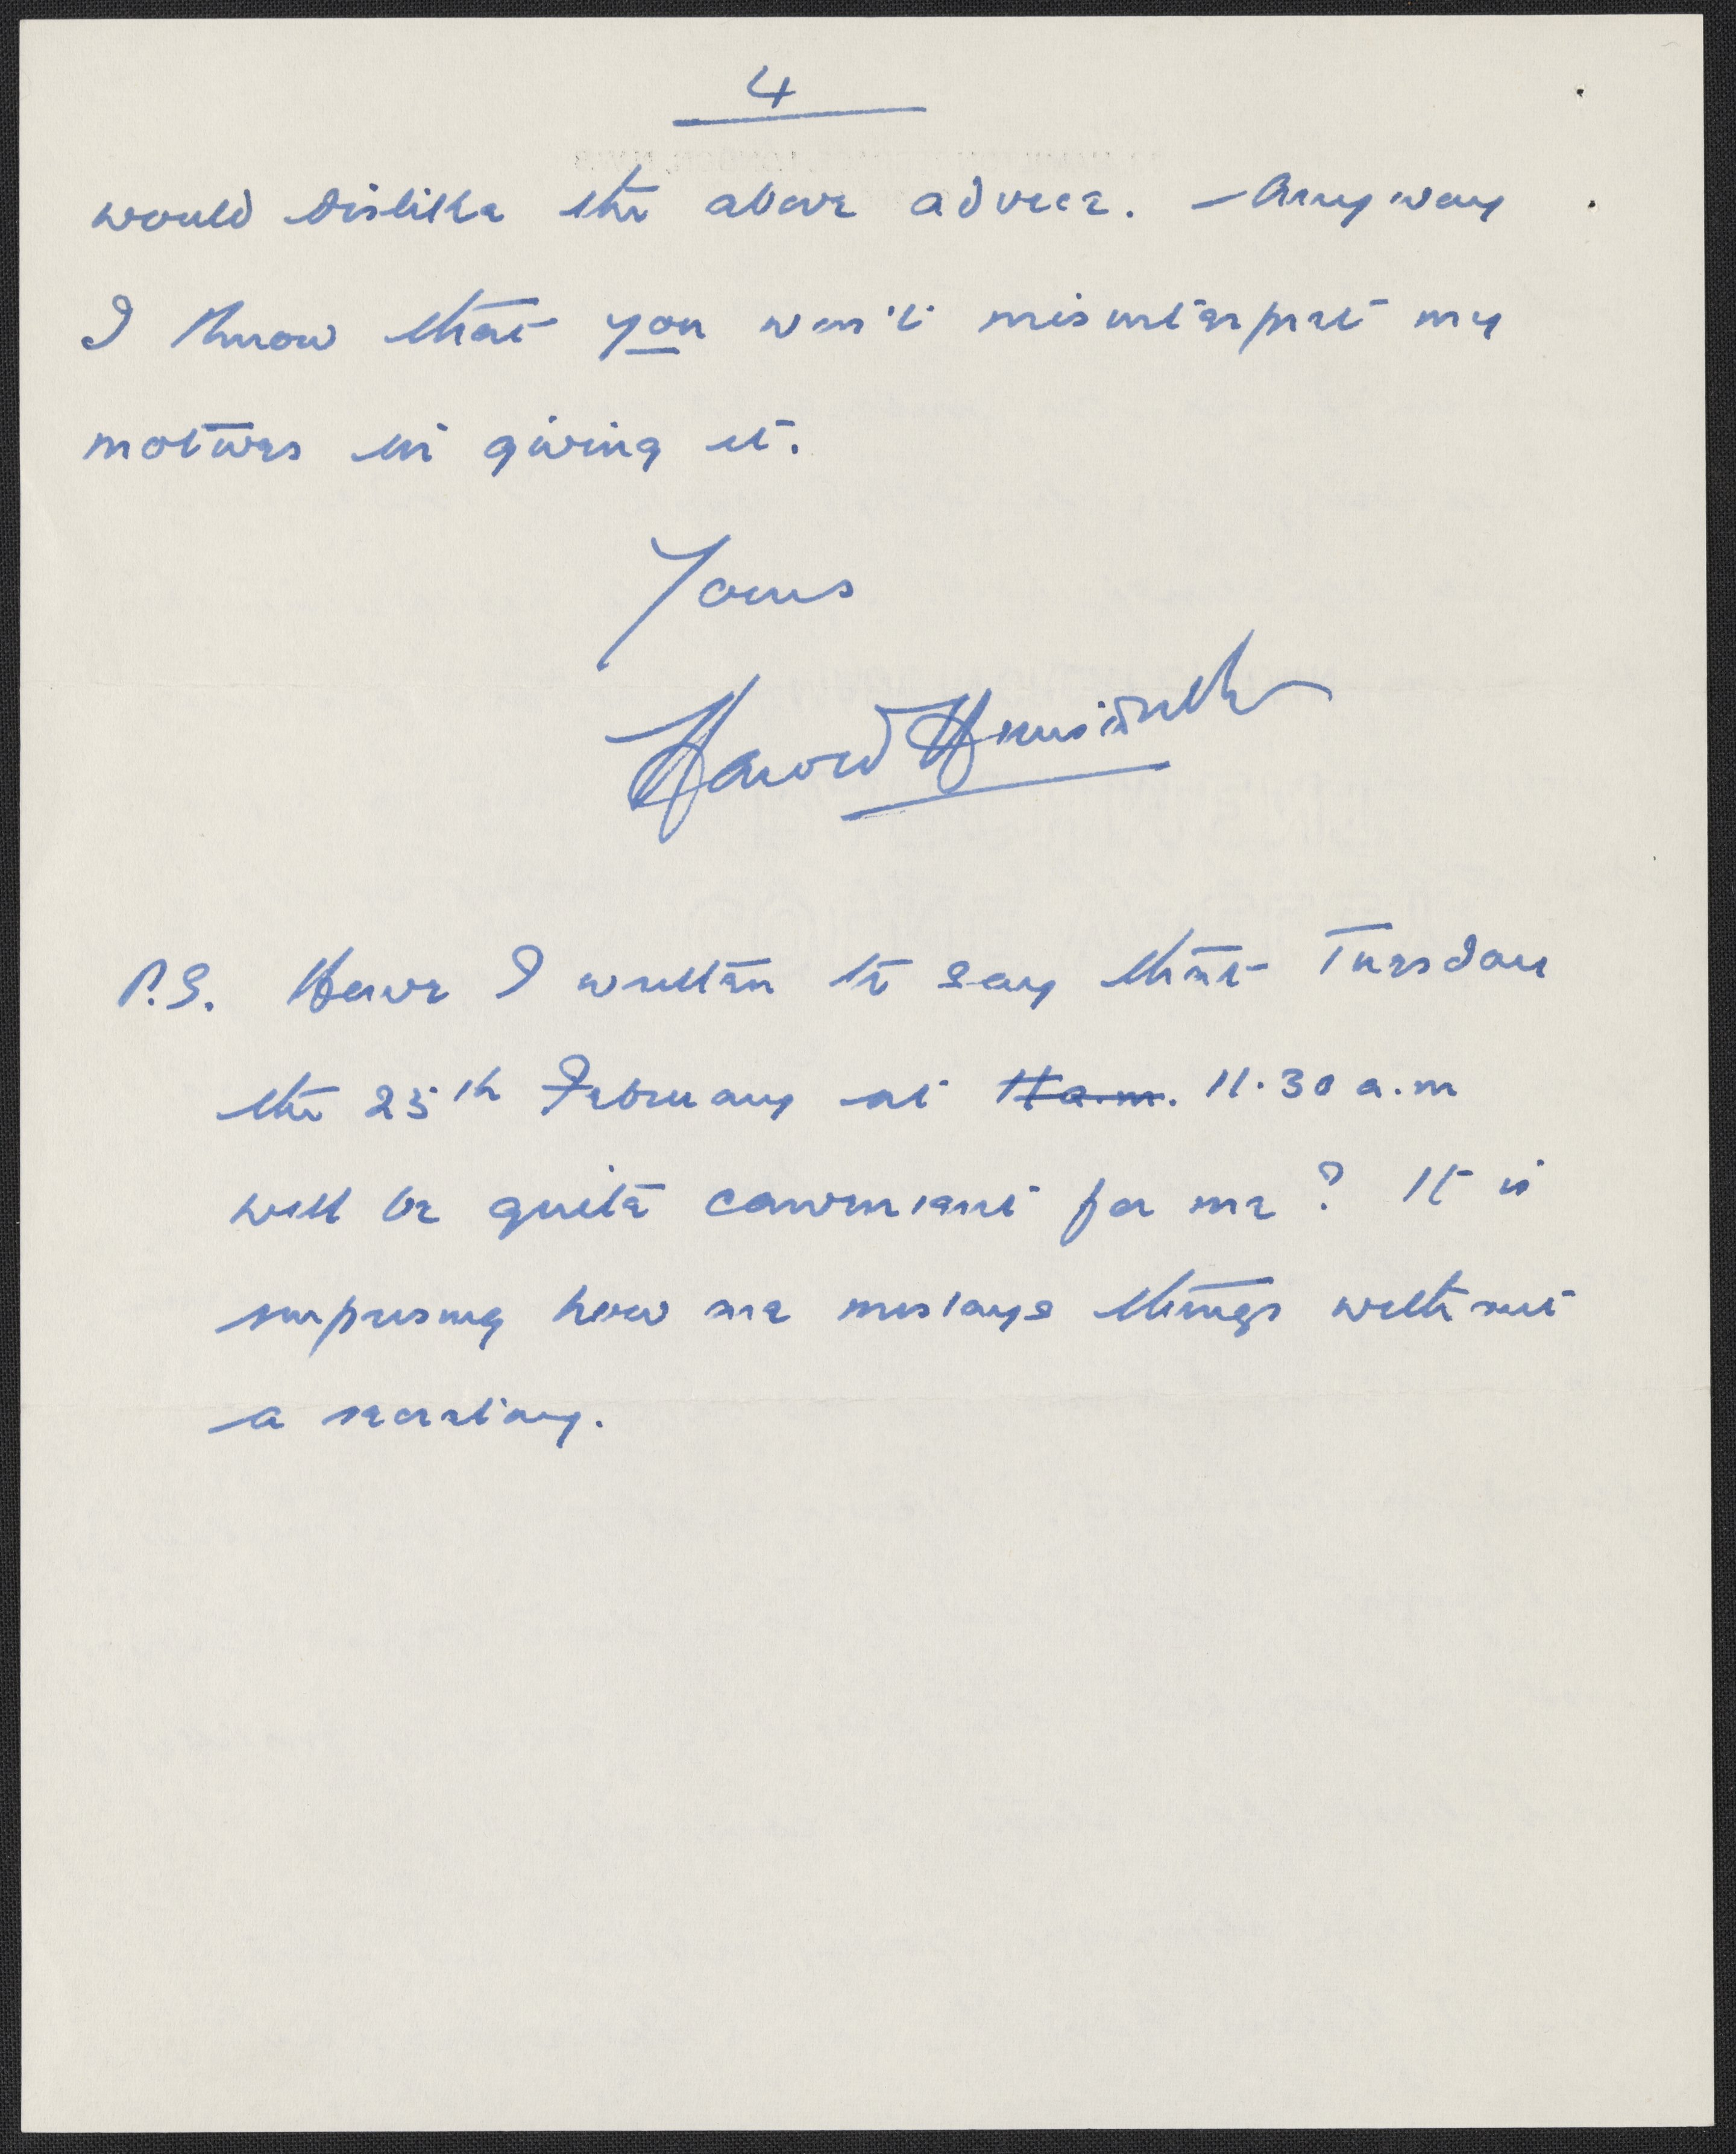 4
would dislike the above advice. – Anyway
I know that you won't misinterpret my
motives in giving it.
Yours
Harold
P.S. Have I written to say that Tuesday
the 25th February at 11 a.m. 11.30 a.m
will be quite convenient for me? It is
surprising how one mislays things without
a secretary.